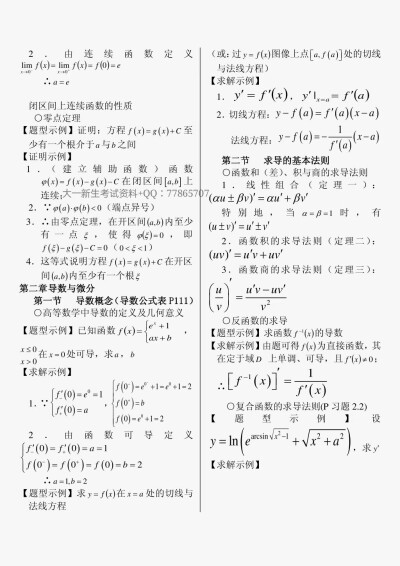 2．由连续函数定义
lim_{x→0⁻} f(x)=lim_{x→0⁺} f(x)=f(0)=e
∴a=e
闭区间上连续函数的性质
○零点定理
【题型示例】证明：方程f(x)=g(x)+C至
少有一个根介于a与b之间
【证明示例】
1．（建立辅助函数）函数
φ(x)=f(x)-g(x)-C在闭区间[a,b]上
连续；
2．∵φ(a)·φ(b)<0（端点异号）
3．∴由零点定理，在开区间(a,b)内至少
有一点ξ，使得φ(ξ)=0，即
f(ξ)-g(ξ)-C=0（0<ξ<1）
4．这等式说明方程f(x)=g(x)+C在开区
间(a,b)内至少有一个根ξ
第二章导数与微分
第一节 导数概念（导数公式表P111）
○高等数学中导数的定义及几何意义
【题型示例】已知函数f(x)={e^x+1
ax+b ，
x≤0
x>0
在x=0处可导，求a，b
【求解示例】
1．∵{f₋′(0)=e⁰=1
f₊′(0)=a
，{f(0⁻)=e⁰+1=e⁰+1=2
f(0⁺)=b
f(0)=e⁰+1=2
2．由函数可导定义
{f₋′(0)=f₊′(0)=a=1
f(0⁻)=f(0⁺)=f(0)=b=2
∴a=1,b=2
【题型示例】求y=f(x)在x=a处的切线与
法线方程
（或：过y=f(x)图像上点[a,f(a)]处的切线
与法线方程）
【求解示例】
1．y′=f′(x)，y′|_{x=a}=f′(a)
2．切线方程：y-f(a)=f′(a)(x-a)
法线方程：y-f(a)=-1/f′(a)(x-a)
第二节 求导的基本法则
○函数和（差）、积与商的求导法则
1．线性组合（定理一）：
(αu±βv)′=αu′+βv′
特别地，当α=β=1时，有
(u±v)′=u′±v′
2．函数积的求导法则（定理二）：
(uv)′=u′v+uv′
3．函数商的求导法则（定理三）：
(u/v)′=(u′v-uv′)/v²
○反函数的求导
【题型示例】求函数f⁻¹(x)的导数
【求解示例】由题可得f(x)为直接函数，其
在定于域D上单调、可导，且f′(x)≠0；
∴[f⁻¹(x)]′=1/f′(x)
○复合函数的求导法则(P习题2.2)
【题型示例】设
y=ln(e^{arcsin√(x²-1)}+√(x²+a²))，求y′
【求解示例】
大一新生考试资料+QQ：77865707